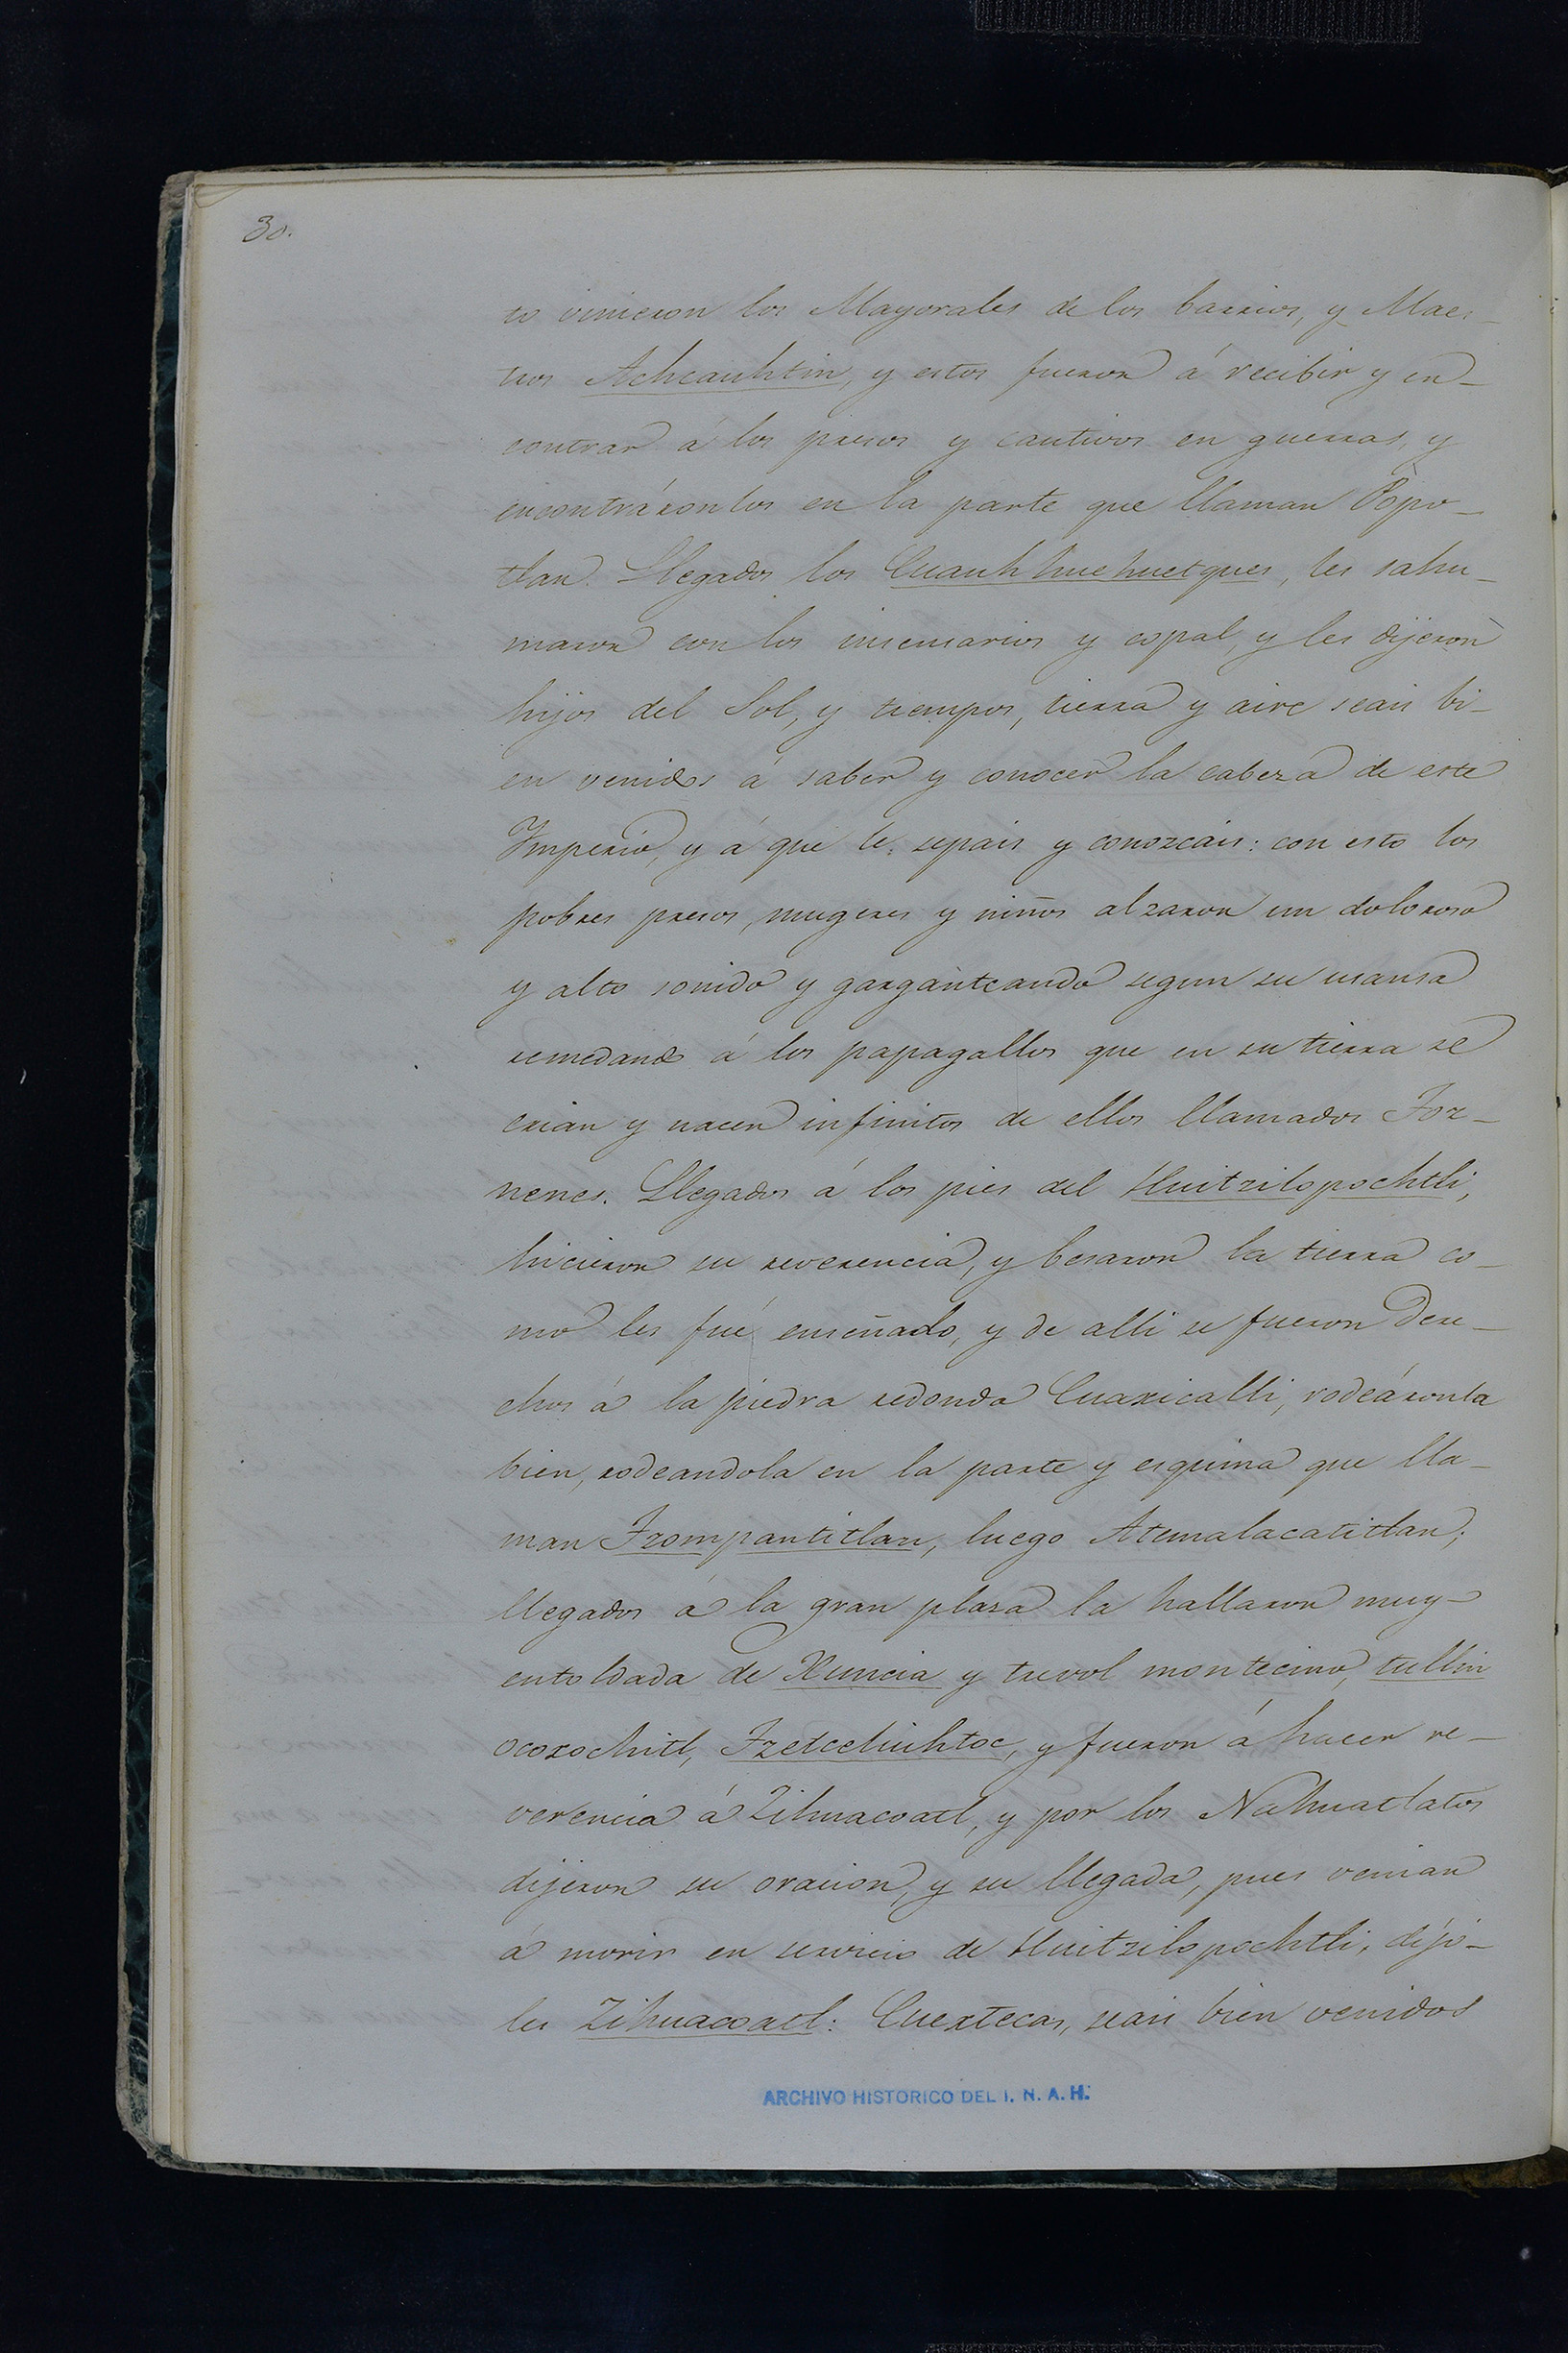 30.
to vinieron los Mayorales de los barrios, y Maes-
tros Achcauhtin, y estos fueron á recibir y en-
contrar á los presos y cautivos en guerras, y
encontráronlos en la parte que llaman Popo-
tlan. Llegados los Cuauhhuehuetques, les sahu-
maron con los insensarios y copal, y les dijeron
hijos del Sol, y tiempos, tierra y aire seais bi-
en venidos á saber y conocer la cabeza de este
Imperio, y á que le sepais y conozcais: con esto los
pobres presos, mugeres y niños alzaron un doloroso
y alto sonido y garganteando segun su usansa
remedando á los papagallos que en su tierra se
crian y nacen infinitos de ellos llamados Toz-
nenes. Llegados á los pies del Huitzilopochtli,
hicieron su reverencia, y besaron la tierra co-
mo les fué enseñado, y de alli se fueron dere-
chos á la piedra redonda Cuaxicalli, rodeáronla
bien, rodeandola en la parte y esquina que lla-
man Tzompantitlan, luego Atemalacatitlan;
llegados á la gran plasa la hallaron muy
entoldada de Xuncia y trevol montecino, tullin
ocoxochitl, Tzetceliuhtoc, y fueron á hacer re-
verencia á Zihuacoatl, y por los Nahuatlatos
dijeron su oracion, y su llegada, pues venian
á morir en servicio de Huitzilopochtli, díjo-
les Zihuacoatl: Cuextecas, seais bien venidos
ARCHIVO HISTORICO DEL I. N. A. H.